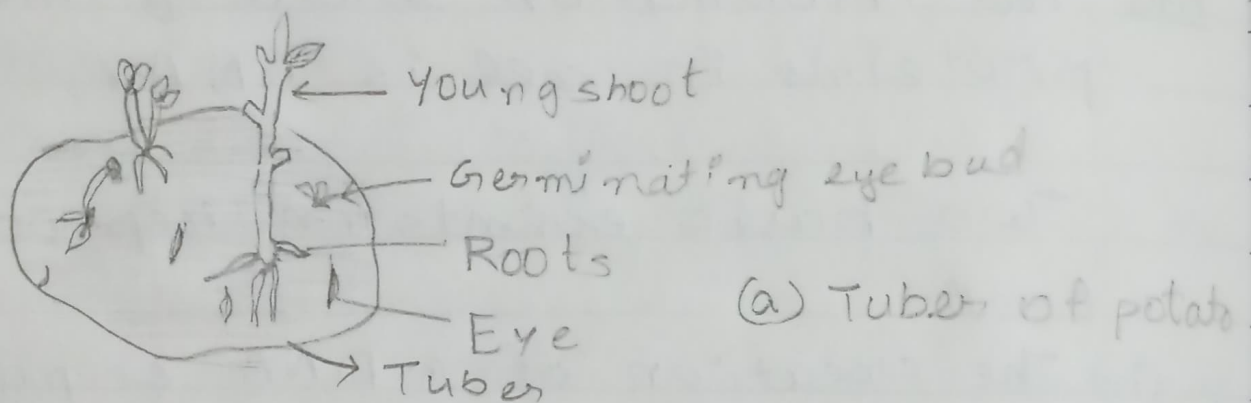 Young shoot
Germinating eye bud
Roots
Eye
Tuber
(a) Tuber of potato